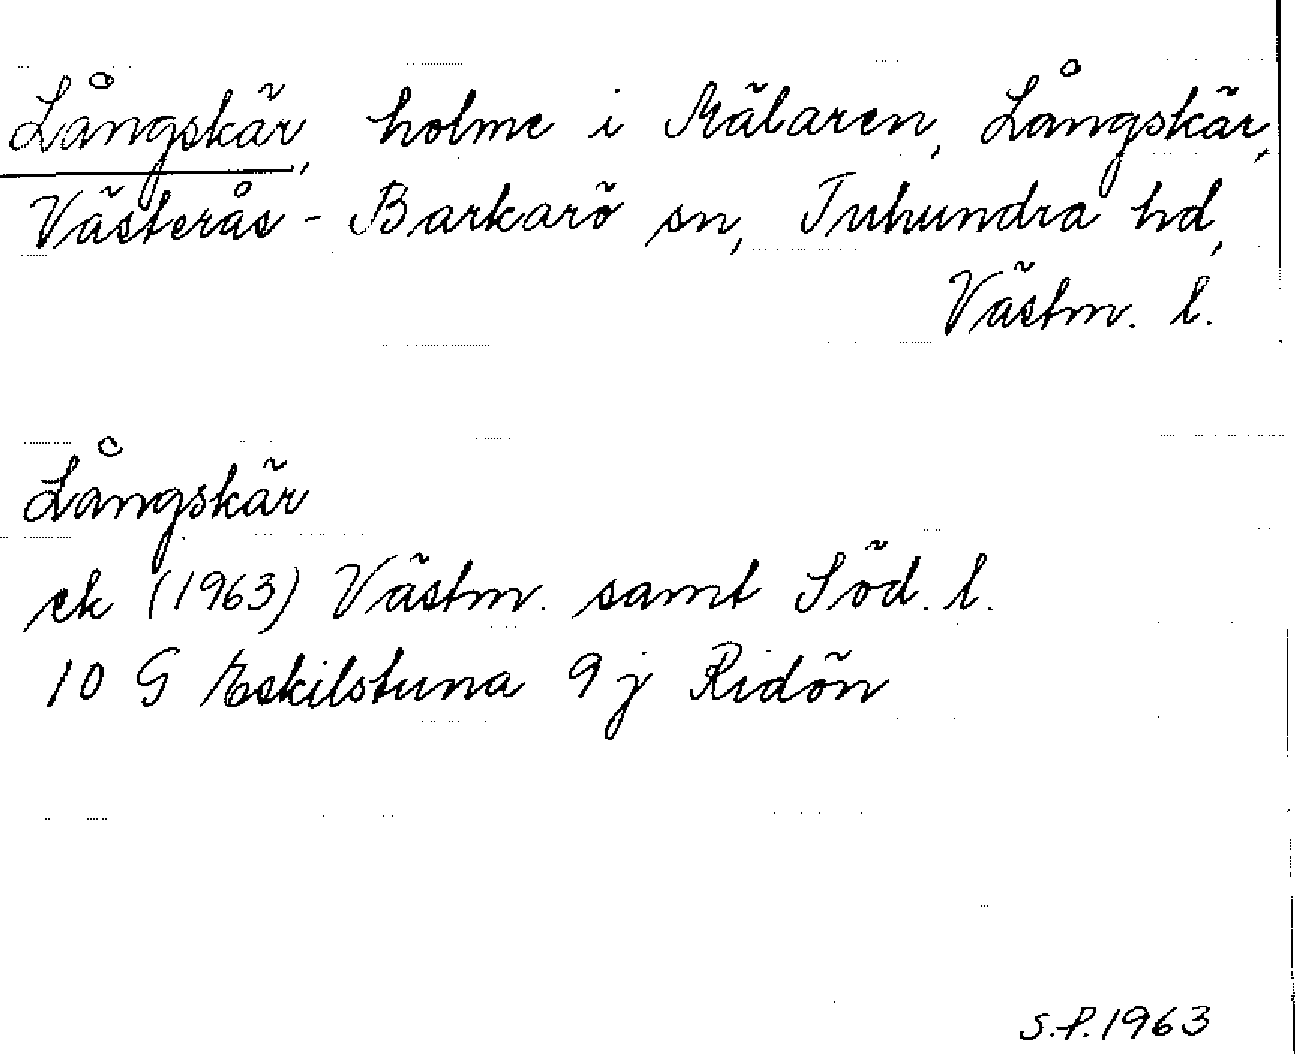 Långskär, holme i Mälaren, Långskär,
Västerås-Barkarö sn, Tuhundra hd,
Västm. l.
Långskär
ek (1963) Västm. samt Söd. l.
10 G Eskilstuna 9 j Ridön
S.P. 1963